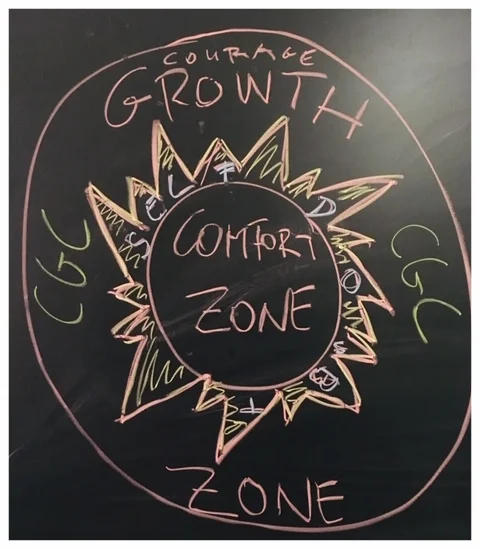 COURAGE
GROWTH
SELF DOUBT
COMFORT
ZONE
CGC
CGC
ZONE